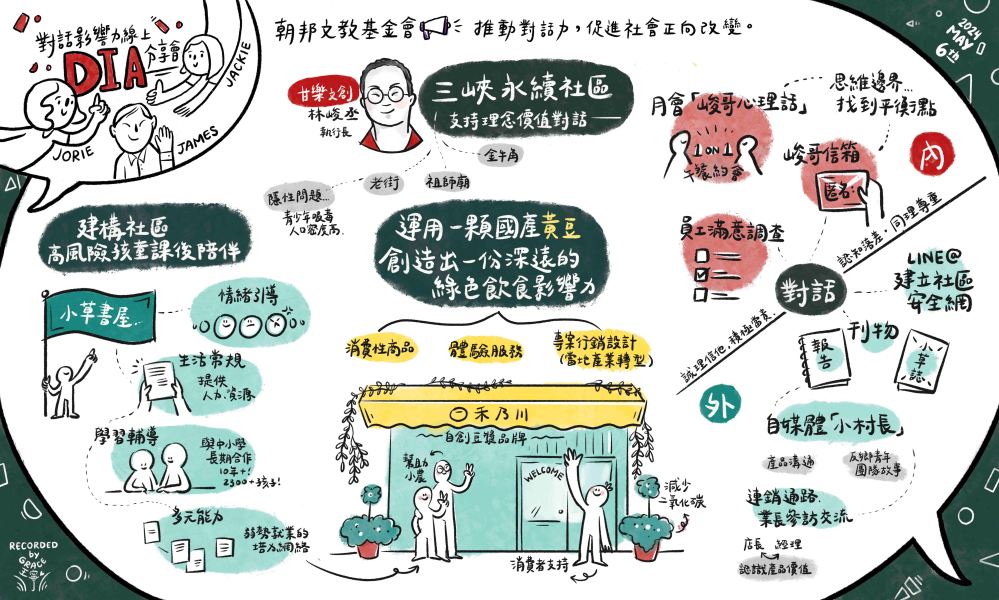 對話影響力線上
分享會
DIA
JORIE
JAMES
JACKIE
朝邦文教基金會 推動對話力，促進社會正向改變。
2024
MAY
6th
甘樂文創
林峻丞
執行長
三峽永續社區
支持理念價值對話
金牛角
老街
祖師廟
隱性問題...
青少年吸毒
人口密度高.
建構社區
高風險孩童課後陪伴
小草書屋...
情緒引導
生活常規
提供
人力.資源
學習輔導
與中小學
長期合作
10年+!
2300+孩子!
多元能力
弱勢就業的
培力網絡
運用一顆國產黃豆
創造出一份深遠的
綠色飲食影響力
消費性商品
體驗服務
專案行銷設計
(當地產業轉型)
禾乃川
自創豆漿品牌
幫助
小農
WELCOME
減少
二氧化碳
消費者支持
月會「峻哥心理話」
1 ON 1
下線約會
思維邊界...
找到平衡點
峻哥信箱
匿名
內
員工滿意調查
對話
認知落差，同理尊重
誠理信他，積極當責
外
LINE@
建立社區
安全網
刊物
報告
小草誌
自媒體「小村長」
產品溝通
反鄉青年
團隊故事
連銷通路
業長參訪交流
店長 經理
認識產品價值
RECORDED
by
GRACE